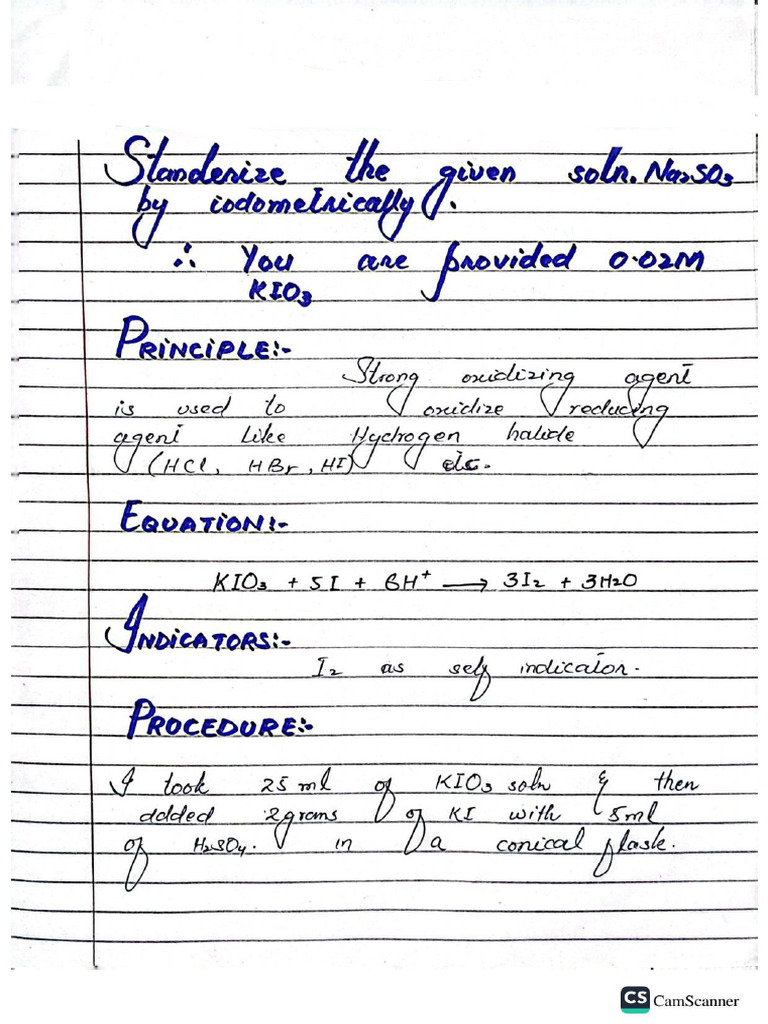 Standerize the given soln. Na₂SO₃
by iodometrically.
∴ You are provided 0.02M
KIO₃
PRINCIPLE:-
Strong oxidizing agent
is used to oxidize reducing
agent like Hydrogen halide
(HCl, HBr, HI) etc.
EQUATION:-
KIO₃ + 5I + 6H⁺ → 3I₂ + 3H₂O
INDICATORS:-
I₂ as self indicator.
PROCEDURE:-
I took 25 ml of KIO₃ soln & then
added 2grams of KI with 5ml
of H₂SO₄. in a conical flask.
CS CamScanner